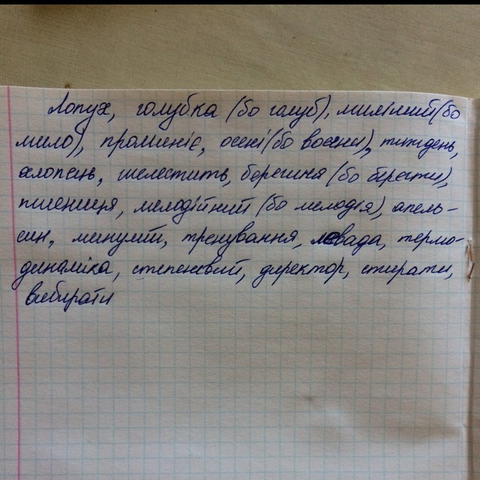 Лопух, голубка (бо голуб), милілий (бо
мило), проминіє, осені (бо восени), тиждень,
хлопець, шелестить, берешня (бо берегти),
пшениця, мелодійний (бо мелодія), апель-
син, минулий, тренування, левада, термо-
динаміка, степенквий, директор, стирати,
вибирати